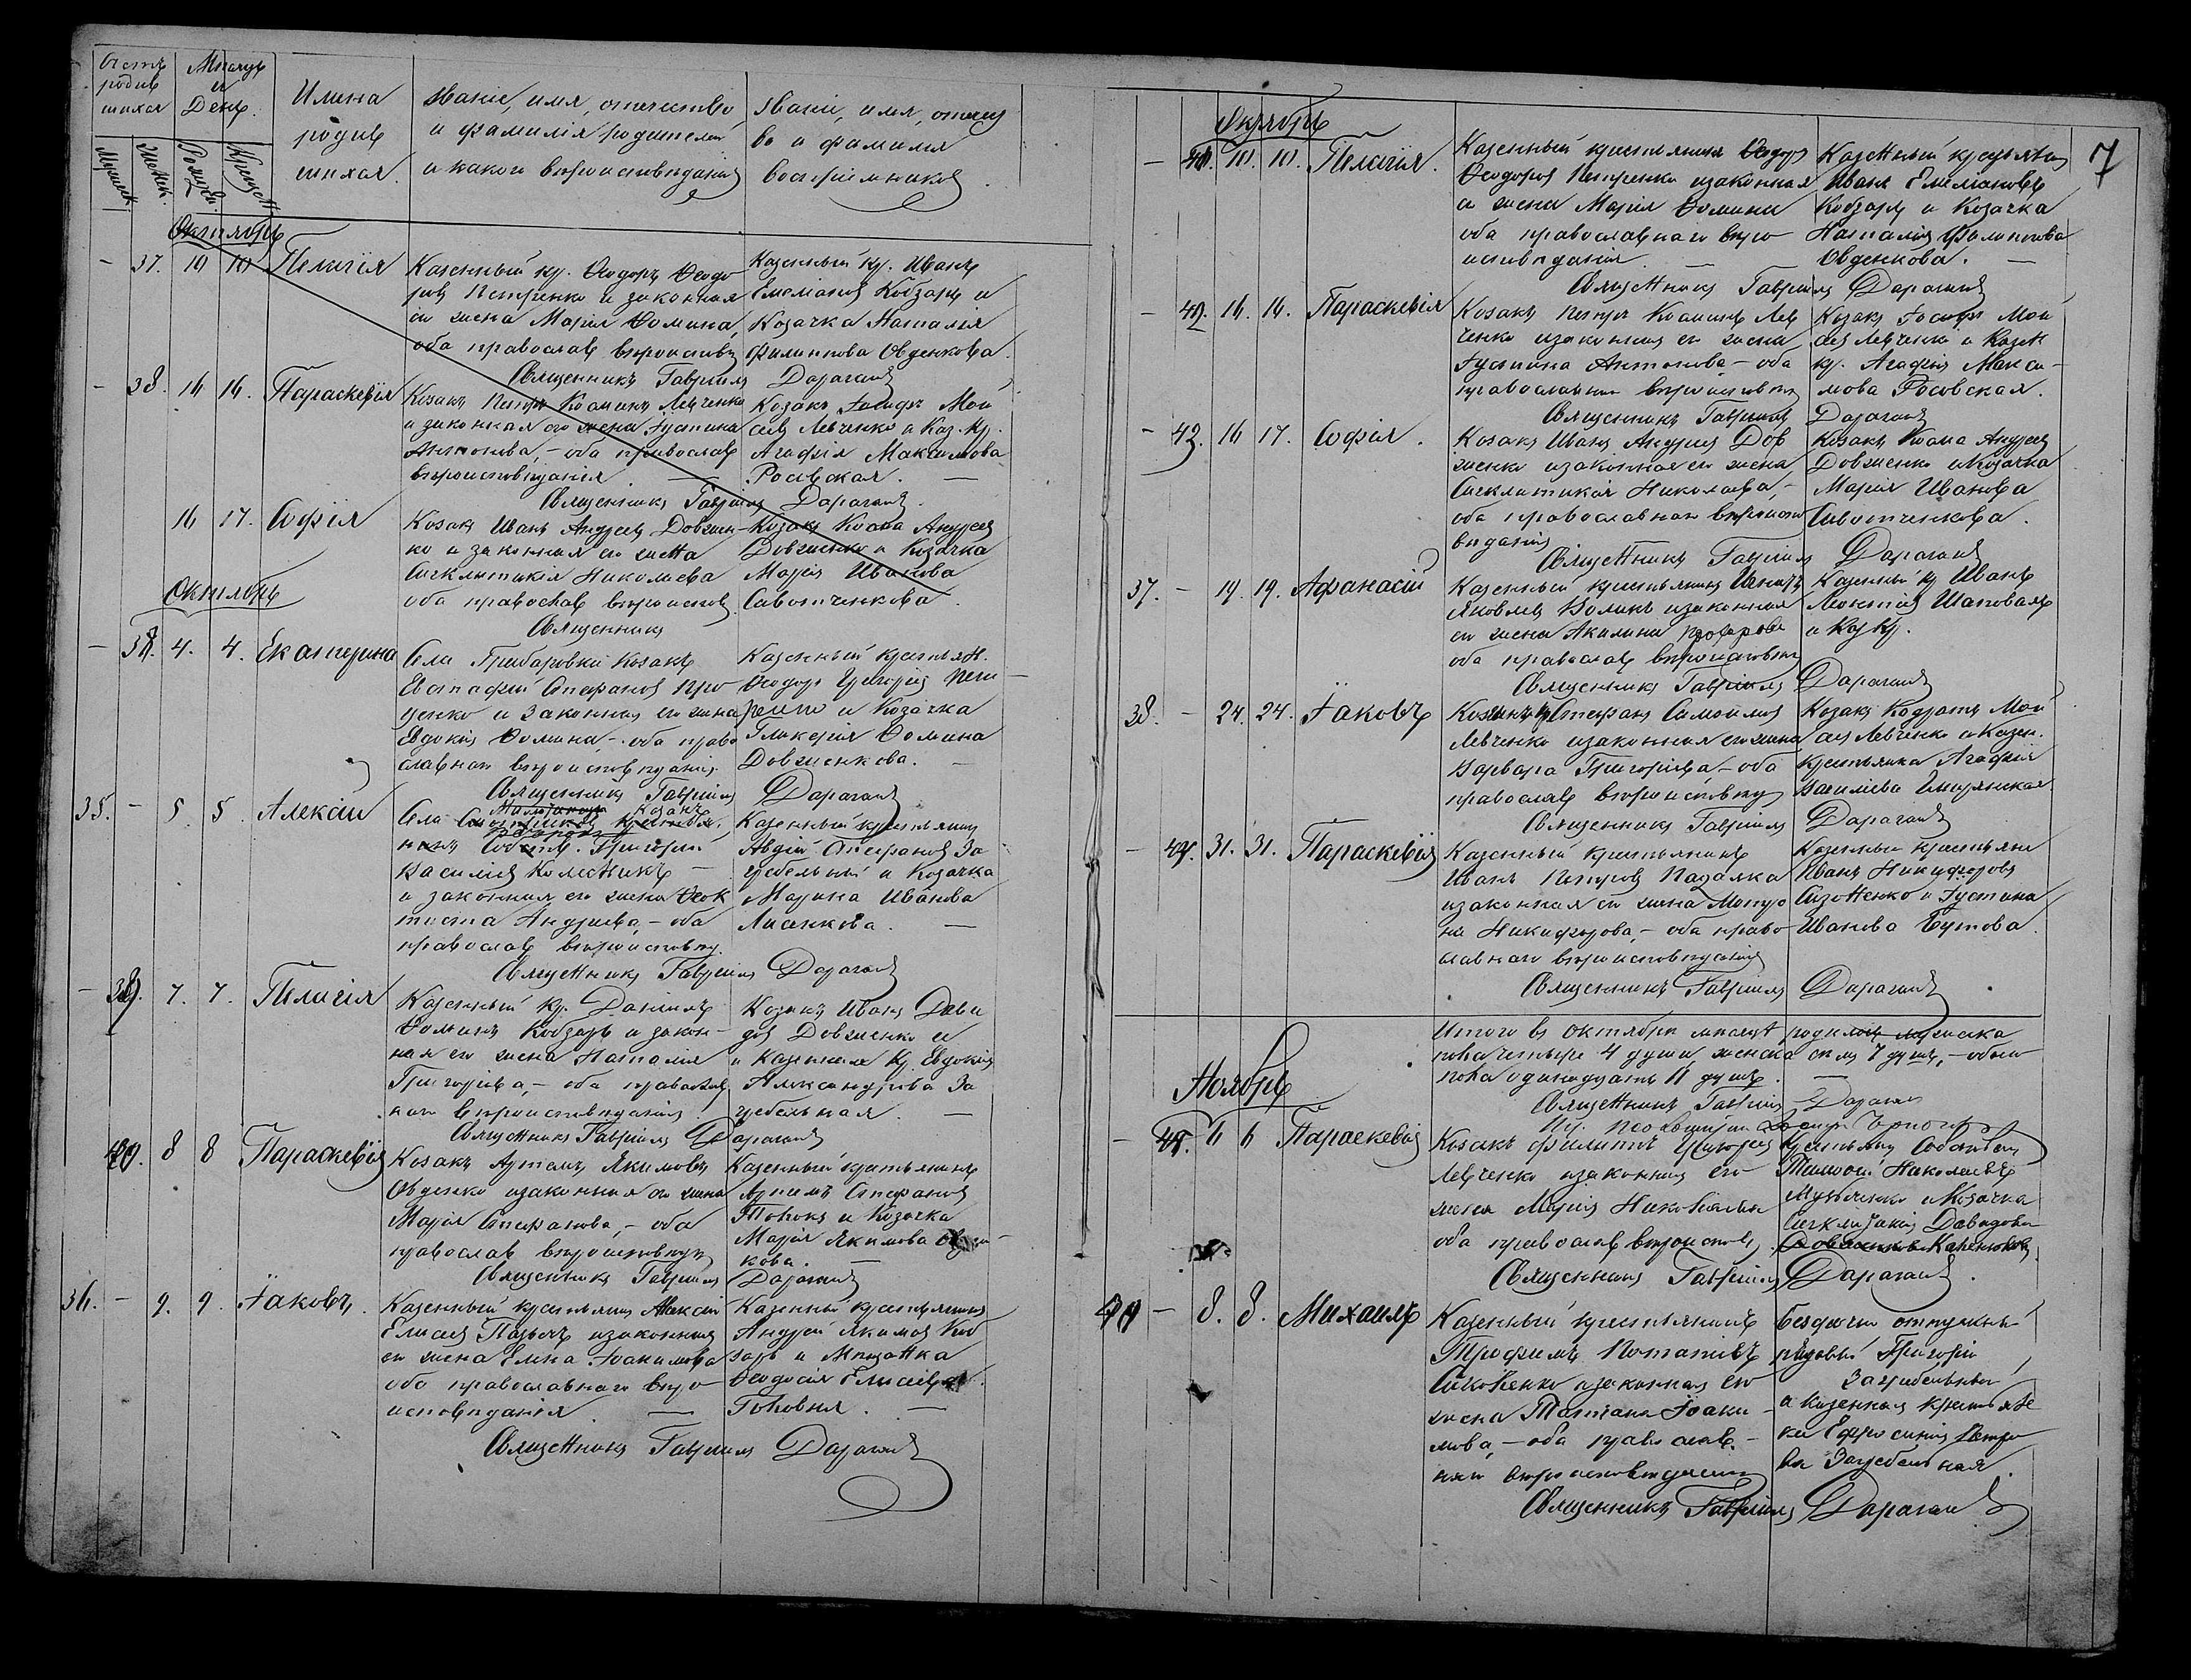 Счетъ родив шихся
Мѣсяцъ и День
Имена родив шихся
Званіе, имя, отечество, и фамилія родителей и какого вѣроисповѣданія
Званіе, имя, отчест во и фамилія воспріемниковъ
Мужеск. Женск. Рожден. Крещен.
Октябрь
- 37. 10 10 Пелагія
Казенный кр. Ѳеодоръ Ѳеодо
ровъ Петренко и законная
его жена Марія Ѳомина,
оба православ вѣроиспов
Казенный кр. Иванъ
Емельяновъ Кобзарь и
Козачка Наталія
Филиппова Овденкова.
Священникъ Гавріилъ Дараганъ
- 38. 16 16. Параскевія
Козакъ Петръ Косминъ Левченко
и законная его жена Іустина
Антонова, - оба православ
вѣроисповѣданія. —
Козакъ Іосифъ Мои
сеевъ Левченко и Каз. Кр.
Агафія Максимова
Росовская. —
Священникъ Гавріилъ Дараганъ.
16 17. Софія
Козакъ Иванъ Андреевъ Довжен-
ко и законная его жена
Сигклитикія Николаева
оба православ вѣроиспов.
Козакъ Косма Андреевъ
Довженко и Козачка
Марія Иванова
Савотченкова.
Священникъ
Октябрь
- 38. 4. 4. Екатерина
Села Грибаровки Козакъ
Евстафій Стефановъ Про
ценко и законная его жена
Евдокія Ѳомина, - оба право
славнаго вѣроисповѣданія.
Казенный крестьян.
Ѳеодоръ Григорьевъ
и Козачка
Гликерія Ѳомина
Довженкова. —
Священникъ Гавріилъ Дараганъ
35. - 5. 5. Алексій
Села
Козакъ
Григорій
Василіевъ Колесникъ -
и законная его жена Ѳеок
тиста Андреева, - оба
православ вѣроисповѣд.
Казенный крестьянинъ
Авдій Стефановъ За
гребельный и Козачка
Марина Иванова
Лисенкова. —
Священникъ Гавріилъ Дараганъ
- 39. 7. 7. Пелагія
Казенный Кр. Даніилъ
Ѳоминъ Кобзарь и закон-
ная его жена Наталія
Григоріева, - оба православ
наго вѣроисповѣданія.
Козакъ Иванъ Дави
довъ Довженко и
и казенная Кр. Евдокія
Александрова За
гребельная. —
Священникъ Гавріилъ Дараганъ
40. 8 8 Параскевія
Козакъ Артемъ Якимовъ
Овденко и законная его жена
Марія Стефанова, - оба
православ вѣроисповѣд
Казенный крестьянинъ
Стефановъ
и Козачка
Марія Якимова
кова. —
Священникъ Гавріилъ Дараганъ
36. - 9. 9. Іаковъ.
Казенный крестьянинъ Алексій
Елисеевъ и законная
его жена Елена Іоакимова
оба православнаго вѣро-
исповѣданія. —
Казенный крестьянинъ
Андрей Якимовъ Коб
зарь и Мѣщанка
Ѳеодосія Елисеева
Головня. —
Священникъ Гавріилъ Дараганъ
7
Октябрь
- 41. 10. 10. Пелагія.
Казенный крестьянинъ Ѳеодоръ
Ѳеодоровъ Петренко и законная
его жена Марія Ѳомина
оба православнаго вѣро-
исповѣданія. —
Казенный крестьянинъ
Иванъ Емельяновъ
Кобзарь и Козачка
Наталія Филиппова
Овденкова. —
Священникъ Гавріилъ Дараганъ
- 42. 16. 16. Параскевія
Козакъ Петръ Косминъ Лев
ченко и законная его жена
Іустина Антонова - оба
православнаго вѣроисповѣд
Козакъ Іосифъ Мои
сеевъ Левченко и Казен
кр. Агафія Макси-
мова Росовская.
Священникъ Гавріилъ Дараганъ
- 43. 16 17. Софія.
Козакъ Иванъ Андреевъ Дов
женко и законная его жена
Сигклитикія Николаева, -
оба православнаго вѣроиспо
вѣданія
Козакъ Косма Андреевъ
Довженко и Козачка
Марія Иванова
Савотченкова.
Священникъ Гавріилъ Дараганъ
37. - 19. 19. Афанасій
Казенный крестьянинъ Игнатъ
Яковлевъ Воликъ и законная
его жена Акилина
оба православ вѣроисповѣд
Казенный кр Иванъ
Леонтіевъ Шаповалъ
и Каз Кр.
Священникъ Гавріилъ Дараганъ
38. - 24. 24. Іаковъ
Козакъ Стефанъ Самойловъ
Левченко и законная его жена
Варвара Григоріева, - оба
православ вѣроисповѣд
Козакъ Кодратъ Мои
сеевъ Левченко и Казен.
крестьянка Агафія
Василіева
Священникъ Гавріилъ Дараганъ
- 44. 31. 31. Параскевія
Казенный крестьянинъ
Иванъ Петровъ Падалка
и законная его жена Матро
на Никифорова, - оба право
славнаго вѣроисповѣданія
Казенный крестьянин
Иванъ Никифоровъ
Сизоненко и Іустина
Иванова Бутова.
Священникъ Гавріилъ Дараганъ
Итого въ Октябрѣ мѣсяцѣ родилось мужеска
пола четыре 4 души, женска семь 7 душъ, - обоего
пола одинадцать 11 душъ. —
Священникъ Гавріилъ Дараганъ
Ноябрь
- 45. 6 6 Параскевія
Козакъ Филиппъ Григорьевъ
Левченко и законная его
жена Марія
оба православ вѣроиспов,
Тимофій Николаевъ
и Козачка
Сигклитикія Давидова
Священникъ Гавріилъ Дараганъ.
- 8. 8. Михаилъ
Казенный крестьянинъ
Трофимъ Потапіевъ
и законная его
жена Татіана Іоаки-
мова, - оба православ-
наго вѣроисповѣданія
отпускный
рядовый Григорій
Загребельный
и казенная крестьян
ка Ефросинія Петро
ва Загребельная.
Священникъ Гавріилъ Дараганъ